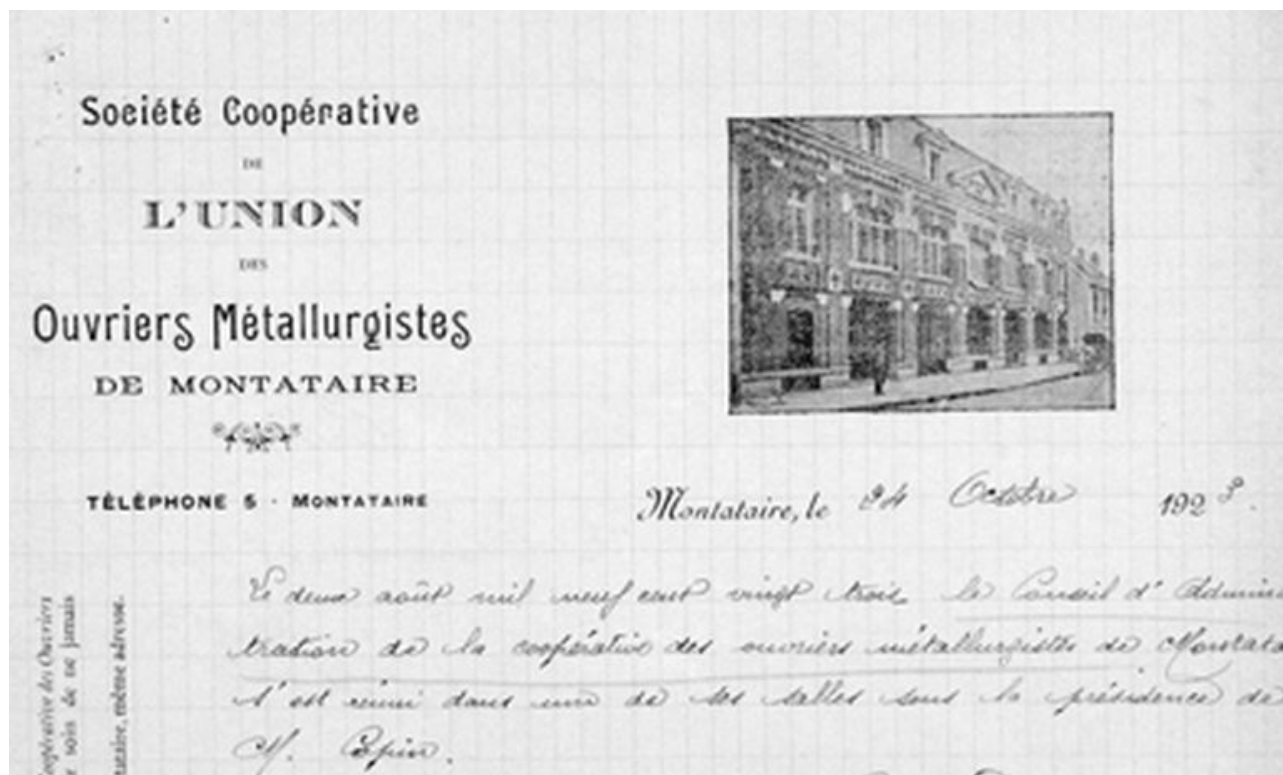 Société Coopérative
DE
L'UNION
DES
Ouvriers Métallurgistes
DE MONTATAIRE
TÉLÉPHONE 5 - MONTATAIRE
Montataire, le 24 Octobre 1923.
Le deux août mil neuf cent vingt trois le Conseil d'Adminis
tration de la coopérative des ouvriers métallurgistes de Montata
s'est réuni dans une de ses salles sous la présidence de
M.
Coopératives des Ouvriers
soin de ne jamais
ntataire, même adresse.